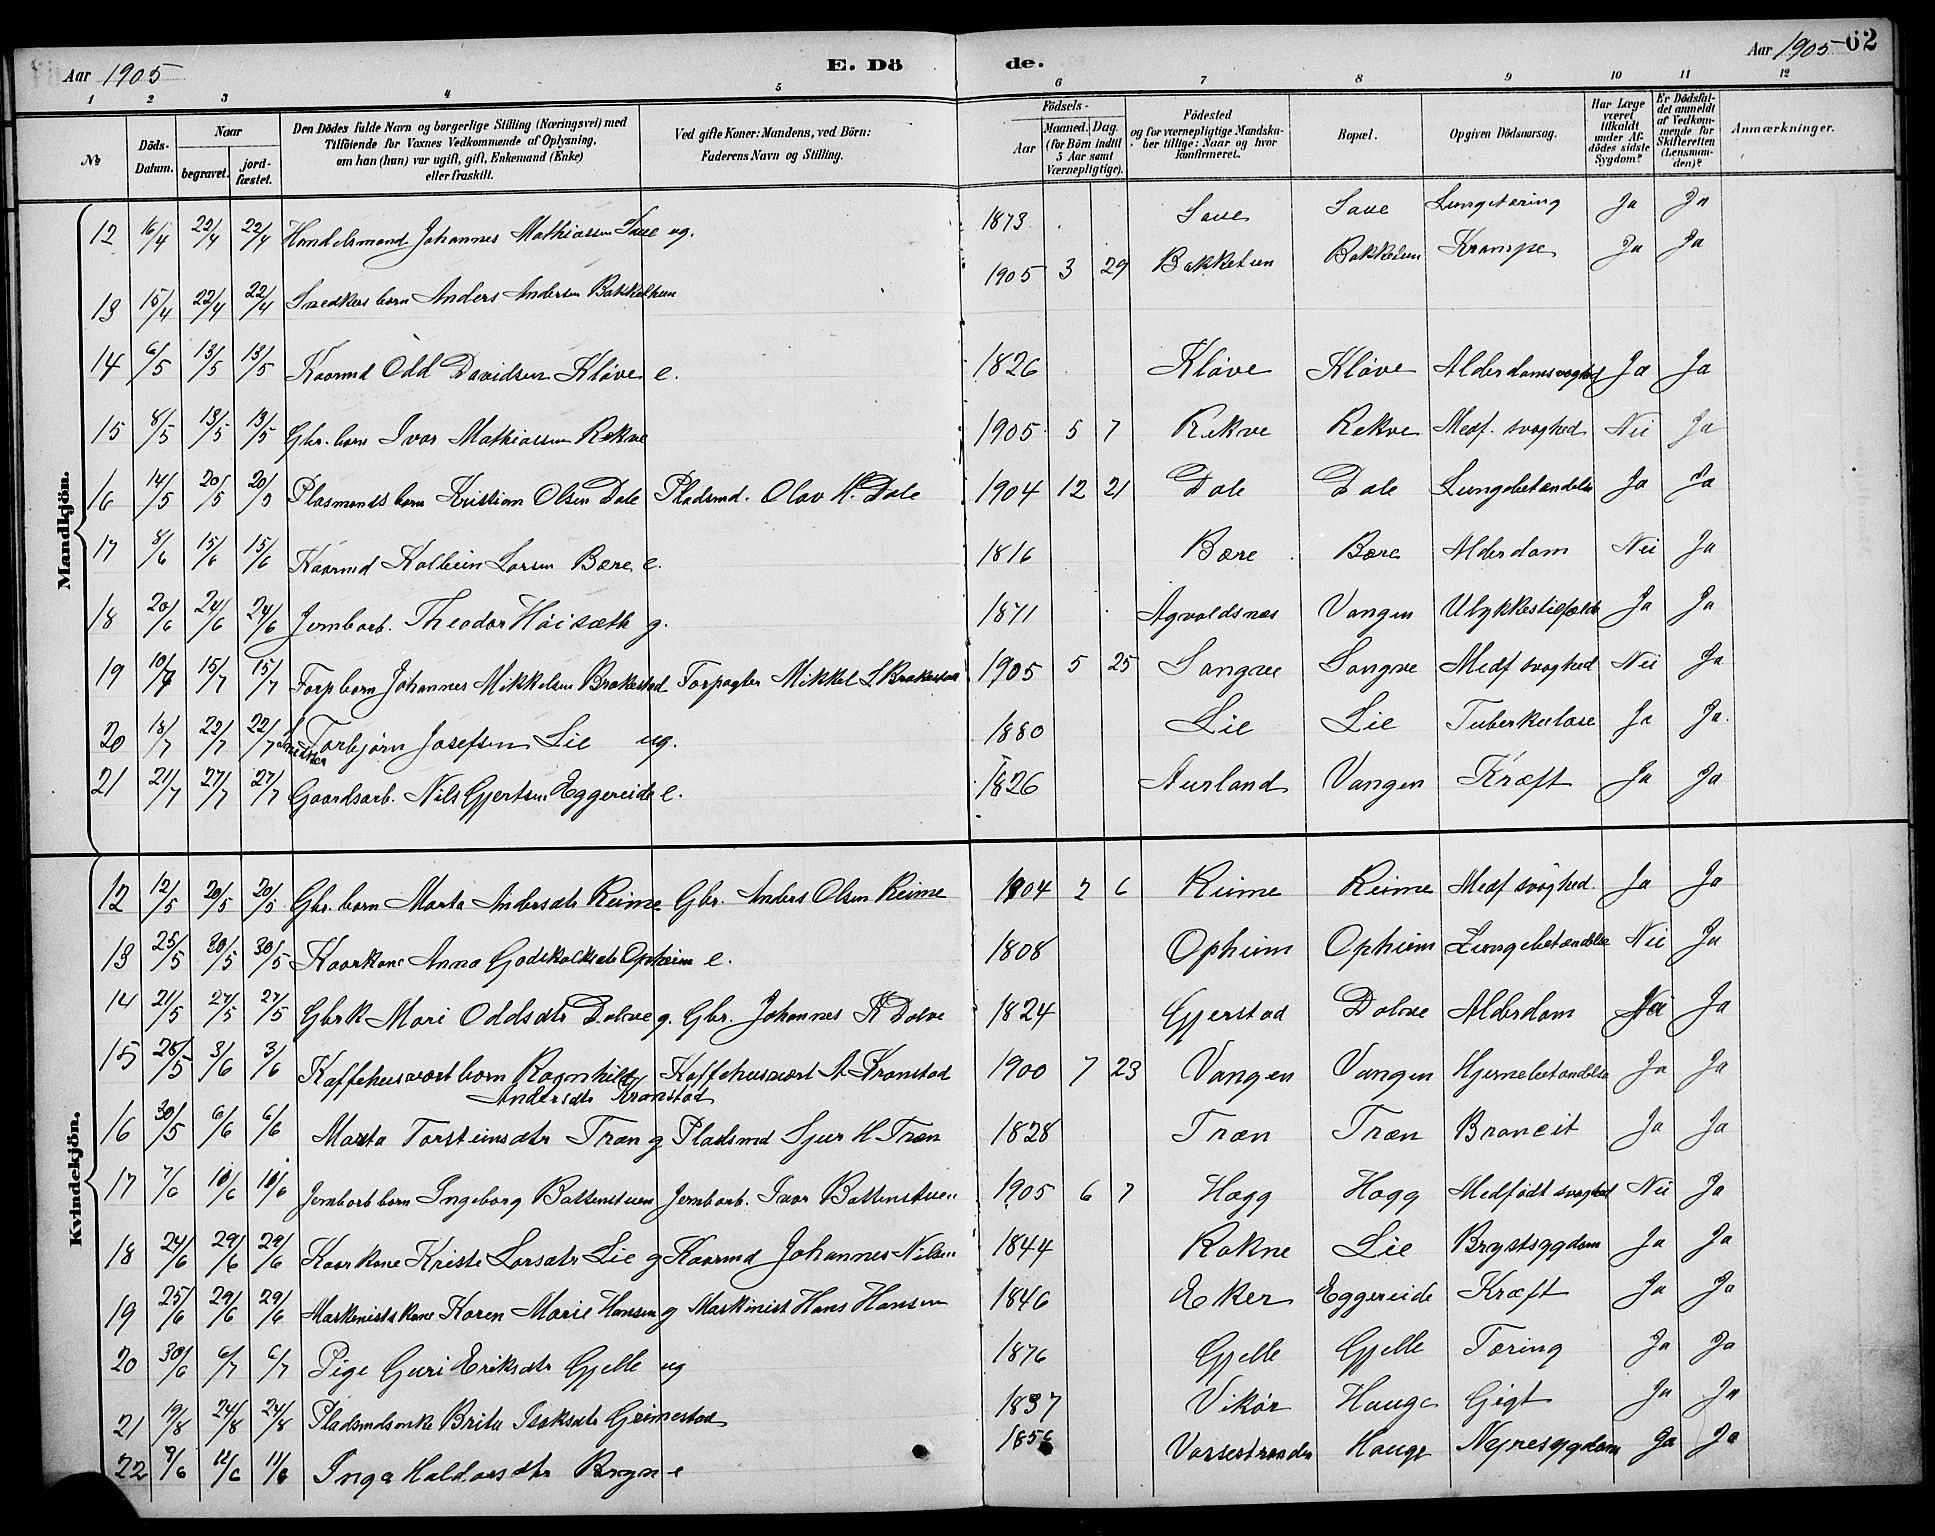 Aar 1905 E. Dö de. Aar 1905 62
1 2 3 4 5 6 7 8 9 10 11 12
No
Döds-Datum.
Naar begravet. jordfæstet.
Den Dödes fulde Navn og borgerlige Stilling (Næringsvei) med Tilföiende for Voxnes Vedkommende af Oplysning, om han (hun) var ugift, gift, Enkemand (Enke) eller fraskilt.
Ved gifte Koner: Mandens, ved Börn: Faderens Navn og Stilling.
Födsels- Aar Maaned. Dag. (for Börn indtil 5 Aar samt Værnepligtige).
Födested og for værnepligtige Mandskaber tillige: Naar og hvor konfirmeret.
Bopæl.
Opgiven Dödsaarsag.
Har Læge været tilkaldt under Afdödes sidste Sygdom?
Er Dödsfaldet anmeldt af Vedkommende for Skifteretten (Lensmanden)?
Anmærkninger.
Mandkjön.
12 16/4 22/4 22/4 Handelsmand Johannes Mathiassen Saue ug. 1873 Saue Saue Lungetæring Ja Ja
13 15/4 22/4 22/4 Snedkers barn Anders Andersen Bakketun 1905 3 29 Bakketun Bakketun Krampe Ja Ja
14 6/5 13/5 13/5 Kaarmd Odd Davidsen Kløve e. 1826 Kløve Kløve Alderdomssvaghed Ja Ja
15 8/5 13/5 13/5 Gbr. barn Ivar Mathiassen Rekve 1905 5 7 Rekve Rekve Medf. svaghed Nei Ja
16 14/5 20/5 20/5 Plasmands barn Kristian Olsen Dale Pladsmd. Olav N. Dale 1904 12 21 Dale Dale Lungebetændelse Ja Ja
17 8/6 15/6 15/6 Kaarmd Kolbein Larsen Bære e. 1816 Bære Bære Alderdom Nei Ja
18 20/6 24/6 24/6 Jernbarb. Theodor Høisæth g. 1871 Agvaldsnæs Vangen Ulykkestilfælde Ja Ja
19 10/7 15/7 15/7 Forp barn Johannes Mikkelsen Brakestad Forpagter Mikkel L Brakestad 1905 5 25 Sangve Sangve Medf svaghed Nei Ja
20 18/7 22/7 22/7 Torbjørn Josefsen Lie ug. 1880 Lie Lie Tuberkulose Ja Ja.
21 21/7 27/7 27/7 Gaardsarb. Nils Gjertsen Eggereide e. 1826 Aurland Vangen Kræft Ja Ja
Kvindekjön.
12 12/5 20/5 20/5 Gbr. barn Marta Andersdtr Reime Gbr. Anders Olsen Reime 1904 2 6 Reime Reime Medf svaghed. Ja Ja
13 25/5 30/5 30/5 Kaarkone Anna Godskalksdtr Opheim e. 1808 Opheim Opheim Lungebetændelse Nei Ja
14 21/5 27/5 27/5 Gbrk Mari Oddsdtr Dolve g. Gbr. Johannes K Dolve 1824 Gjerstad Dolve Alderdom Nei Ja
15 26/5 3/6 3/6 Kaffehusvært barn Ragnhild Andersdtr Kronstad Kaffehusvært A. Kronstad 1900 7 23 Vangen Vangen Hjernebetændelse Ja Ja
16 30/5 6/6 6/6 Marta Torsteinsdtr Træn g Pladsmd Sjur H. Træn 1828 Træn Træn Broncit Ja Ja
17 7/6 10/6 10/6 Jernbarb barn Ingeborg Battenstuen Jernbarb. Ivar Battenstuen 1905 6 7 Hagg Hagg Medfødt svaghed Nei Ja
18 24/6 29/6 29/6 Kaarkone Kristi Larsdtr Lie g Kaarmd Johannes Nilsen 1844 Rokne Lie Brystsygdom Ja Ja
19 25/6 29/6 29/6 Maskinists kone Karen Marie Hansen g Maskinist Hans Hansen 1846 Eker Eggereide Kræft Ja Ja
20 30/6 6/7 6/7 Pige Guri Eriksdtr Gjelle ug 1876 Gjelle Gjelle Tæring Ja Ja
21 19/8 24/8 24/8 Pladsmdsenke Brita Isaksdtr Grimestad 1837 Vikør Hauge Gigt Ja Ja
22 9/6 12/6 11/6 Inga Haldorsdtr Bryn e 1856 Vossestranden Hauge Nyresygdom Ja Ja